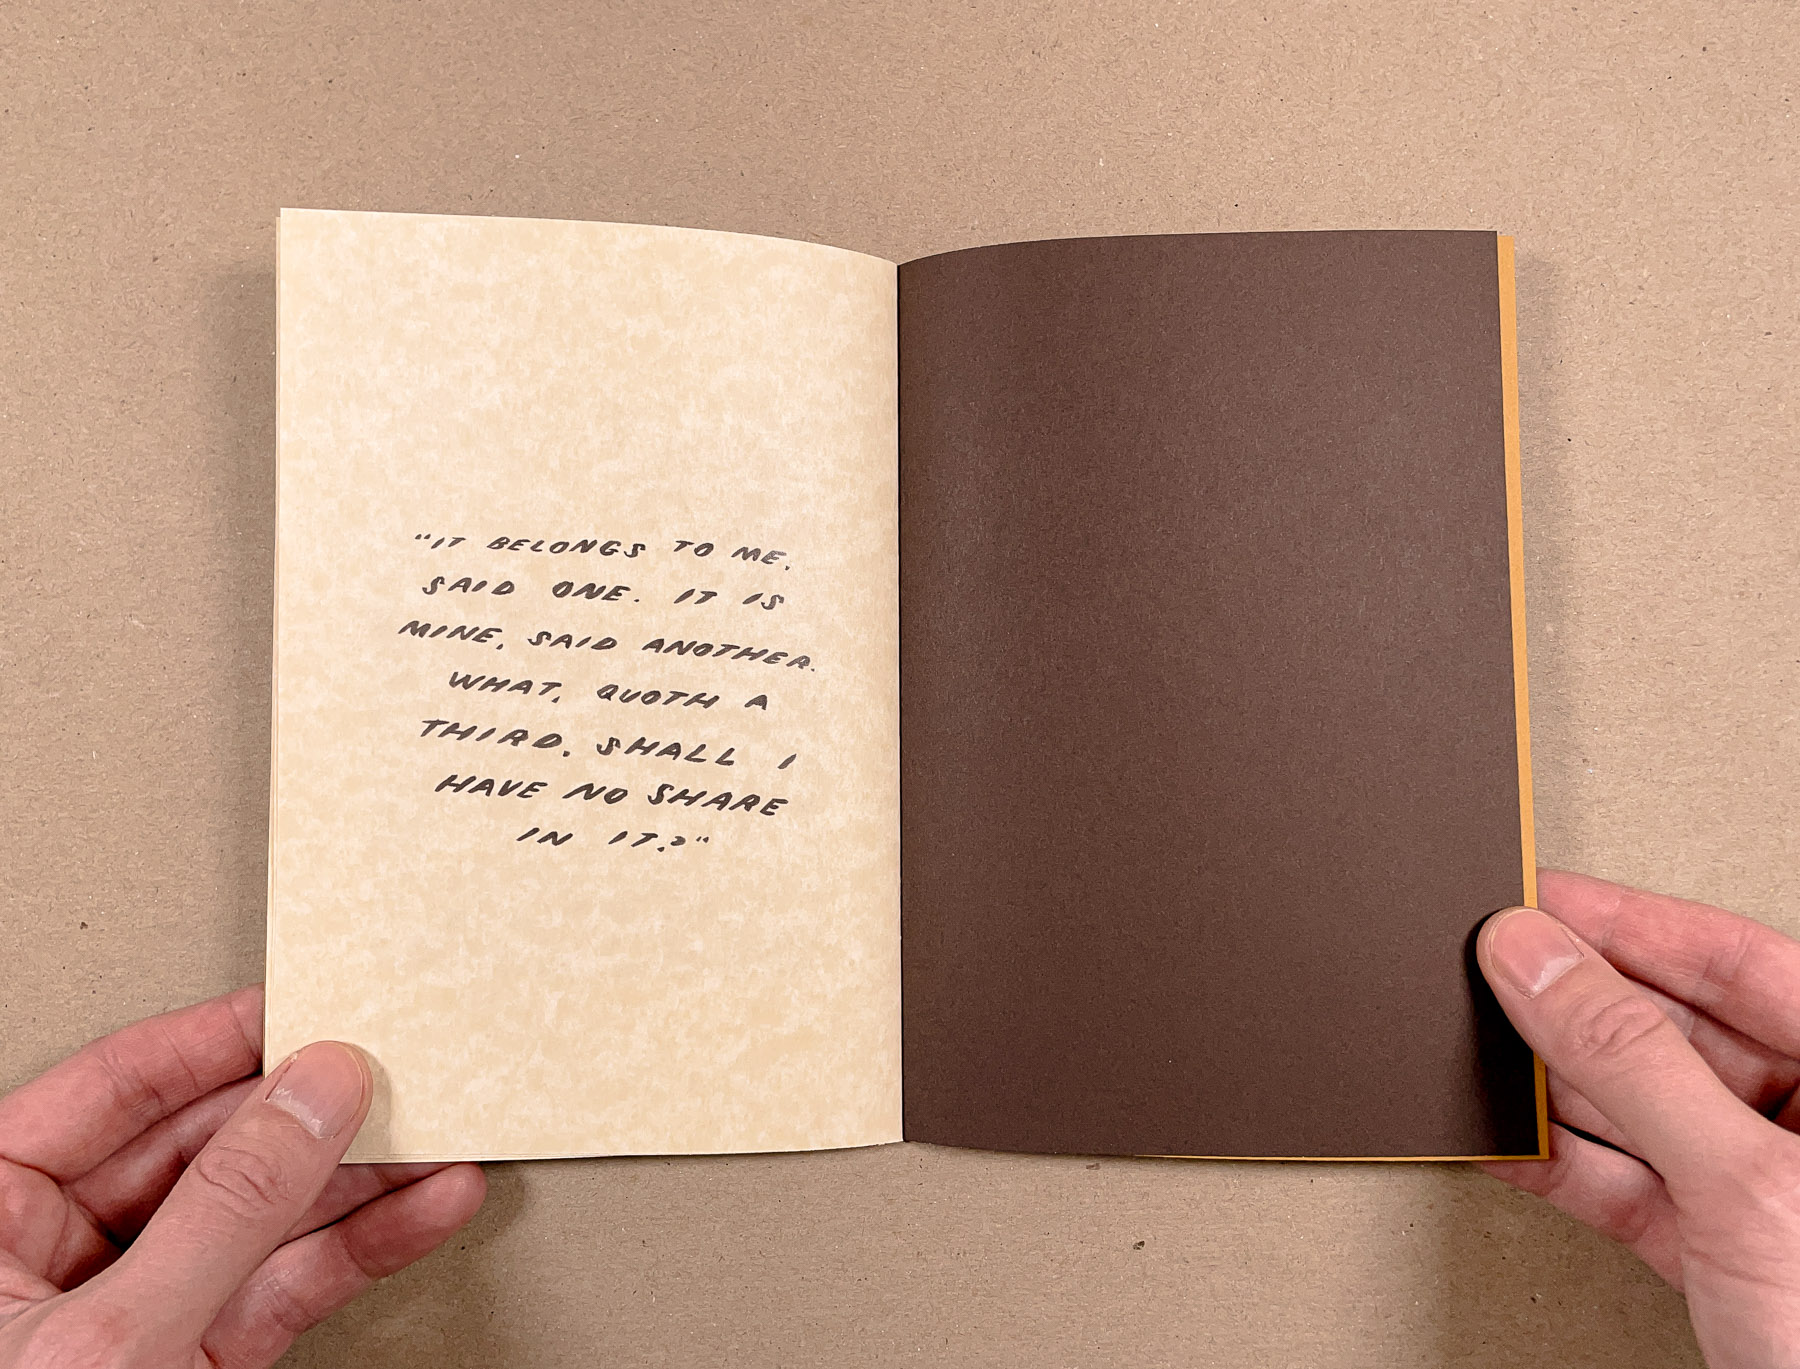 "IT BELONGS TO ME,
SAID ONE. IT IS
MINE, SAID ANOTHER.
WHAT, QUOTH A
THIRD, SHALL I
HAVE NO SHARE
IN IT?"